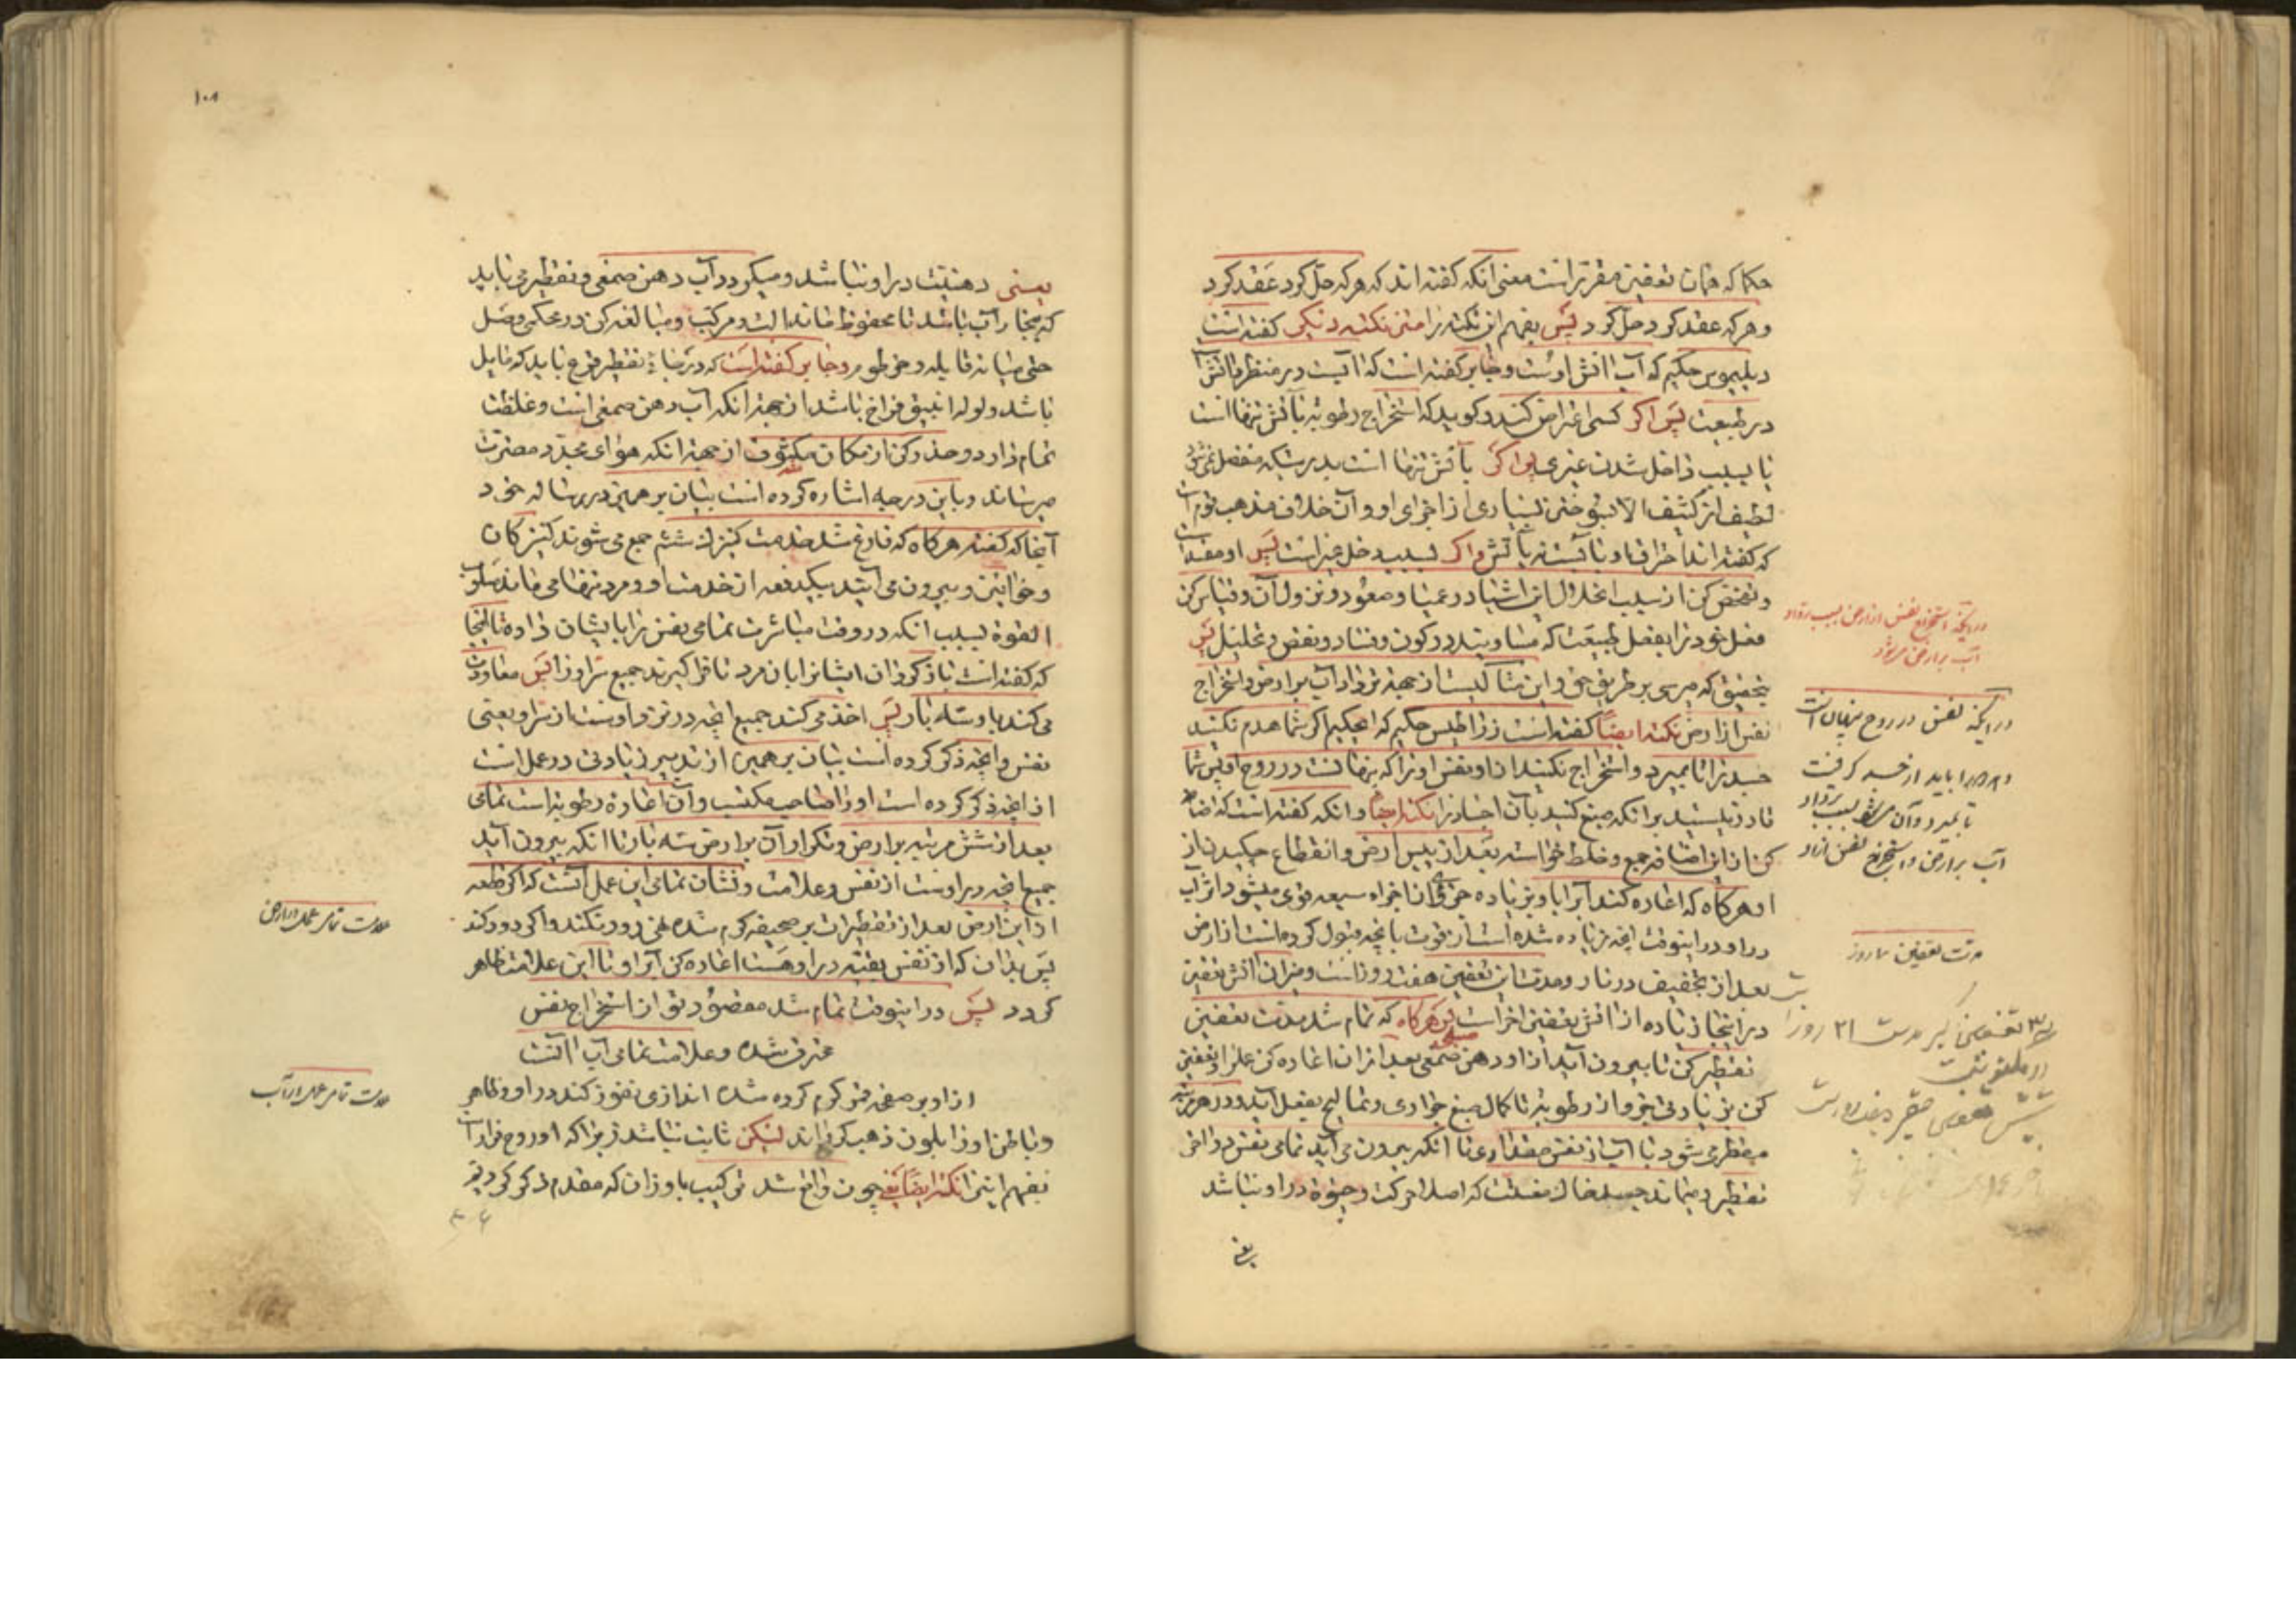 حکما که زمان تعفین مقرر است معنی آنکه گفته اند که هر که حل کرد عقد کرد
و هر که عقد کرد حل کرد پس بفهم این نکته را متن نکته دیگر گفته است
حکیم که آب آتش اوست و جابر گفته است که آبیست در منظر و آتش
در طبیعت پس اگر کسی اعتراض کند و گوید که استخراج رطوبة بآتش تنها است
یا بسبب داخل شدن غیری پس اگر بآتش تنها است بدرستیکه منفصل نمیشود
لطیف از کثیف الا بسوختن بسیاری از اجزای او و آن خلاف مذهب قوم است
که گفته اند احراق او بایست بآتش و اگر بسبب دخل غیر است پس او مقصد است
و تفحص کن از سبب انحلال این اشیا در عمیا و صعود و نزول آن و قیاس کن
فعل خود را بفعل طبیعت که مساویند در کون و فساد و نقض و تحلیل پس
بتحقیق که میرسی بر طریق حق و این متأکیست از جهة ترداد آب بر ارض و استخراج
نفس از ارض نکته ایضاً گفته است حکیم که ای حکیم اگر شما هدم نکنید
جسد را تا بمیرد و استخراج نکنید از او نفس او را که پنهانست در روح او پس شما
قادر نیستید بر آنکه صبغ کنید بآن اجساد را نکته ایضاً و آنکه گفته است که اضافه
کن از این اضافه جمع و خلط خواسته بعد از یبس ارض و انقطاع چکیدن از
او هرگاه که اعاده کند آب را باو بزیاده جزوی از اجزاء سبعه قوی میشود اثر آب
در او و در اینوقت آنچه زیاده شده است از قوت بآنچه قبول کرده است از ارض
بعد از تجفیف در نار و مدت این تعفین هفت روز است و میزان آتش تعفین
در اینجا زیاده از آتش تعفین آخر است پس هرگاه که تمام شد مدت تعفین
تقطیر کن تا بیرون آید از او دهن صمغی بعد از آن اعاده کن عمل را و تعفین
کن بزیادتی جزو از رطوبة تا کمال صبغ جواری و نمالیح بفعل آید و در هر مرتبه
مقطر می شود با آب از نفس مقداری تا آنکه بیرون می آید تمامی نفس در آخر
تقطیر و میماند جسد خاک منفلت که اصلا حرکت و حیوة در او نباشد
یعنی
در اینکه استخراج نفس از ارض بسبب ترداد
آب بر ارض میشود
در اینکه نفس در روح پنهان است
و او را باید از جسد گرفت
تا بمیرد و آن میشود بسبب ترداد
آب بر ارض و استخراج نفس از او
مدت تعفین ۷ روز
۱۰۸
یعنی دهنیت در او نباشد و میگردد آب دهن صمغی و تقطیر می باید
که بخار آب باشد تا محفوظ ماند آلت و مرکب و مبالغه کن در محکمی وصل
حتی میانه قابله و خرطوم و جابر گفته است که در میانة تقطیر قرع باید که مایل
باشد و لوله انبیق فراخ باشد از جهة آنکه آب دهن صمغی است و غلظت
تمام دارد و حذر کن از مکان مکشوف از جهة آنکه هوای مجرد مضرت
میرساند و باین درجه اشاره کرده است بیان برهمین در رساله خود
آنجا که گفته هرگاه که فارغ شد خدمت کنیزک ششم جمع می شوند کنیزکان
و خواتین و بیرون می آیند بیکدفعه از خدمت او و مرد تنها می ماند مسلوب
القوة بسبب آنکه در وقت مباشرت تمامی نفس را بایشان داده تا آنجا
که گفته است باز گردان ایشانرا بان مرد تا فرا گیرند جمیع سر او را پس معاودت
می کند باو سه بار پس اخذ می کند جمیع آنچه در نزد اوست از سر او یعنی
نفس و آنچه ذکر کرده است بیان برهمین از تدبیر زیادتی در عمل است
از آنچه ذکر کرده است او را صاحب مکتسب و آن اعادة رطوبة است تمامی
بعد از شش مرتبه بر ارض و تکرار آن بر ارض سه بار تا آنکه بیرون آید
جمیع آنچه در اوست از نفس و علامت و نشان تمامی این عمل آنست که اگر قطعه
از این ارض بعد از تقطیرات بر صحیفه گرم شده نهی دود نکند و اگر دود کند
پس بدان که از نفس بقیه در او هست اعاده کن آب را و تا این علامت ظاهر
گردد پس در اینوقت تمام شد مقصود تو از استخراج نفس
محترق شده و علامت تمامی آب آنست
از او بر صفحه قمر گرم کرده شده اندازی نفوذ کند در او و ظاهر
و باطن او را بلون ذهب گرداند لیکن ثابت نباشد زیرا که او روح فرار است
بفهم اینرا نکته ایضاً یعنی چون واقع شد ترکیب باوزان که مقدم ذکر کردیم
علامت تمامی عمل در ارض
علامت تمامی عمل در آب